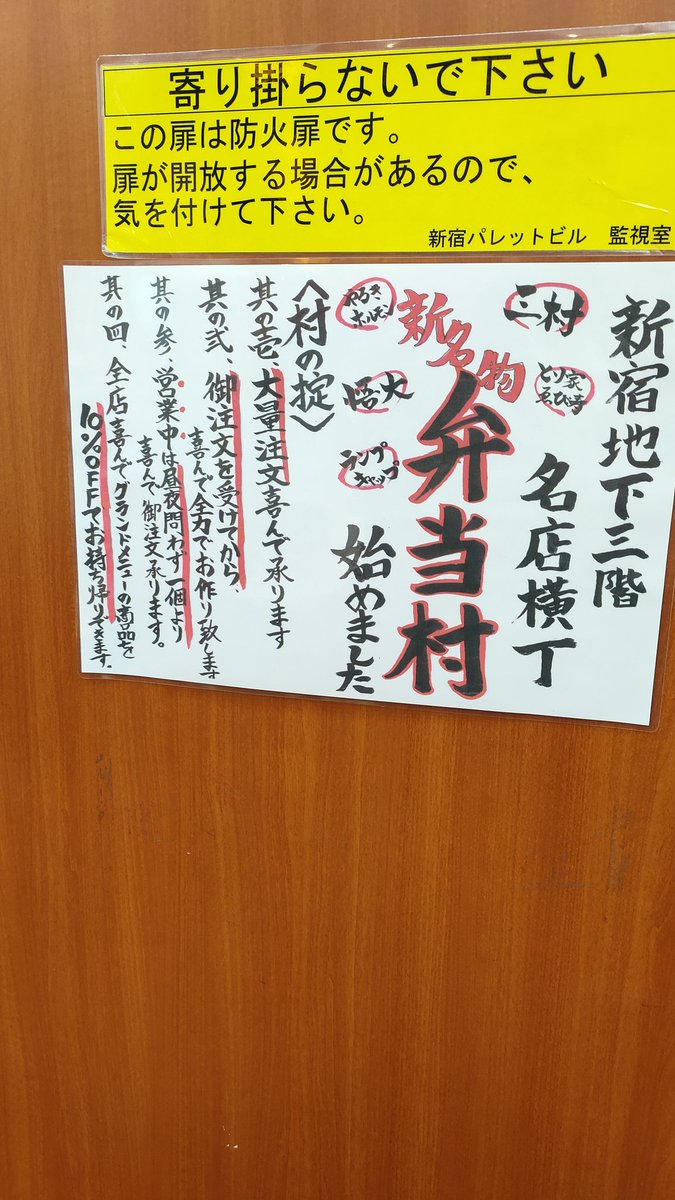 寄り掛らないで下さい
この扉は防火扉です。
扉が開放する場合があるので、
気を付けて下さい。
新宿パレットビル 監視室
新宿地下三階
名店横丁
三村
とり家
ゑび寿
新名物
弁当村
始めました
やるき
ホルモン
悟大
ランプ
キャップ
〈村の掟〉
其の壱、大量注文喜んで承ります
其の弐、御注文を受けてから、
喜んで全力でお作り致します
其の参、営業中は昼夜問わず一個より
喜んで御注文承ります。
其の四、全店喜んでグランドメニューの商品を
10%OFFでお持ち帰りできます。